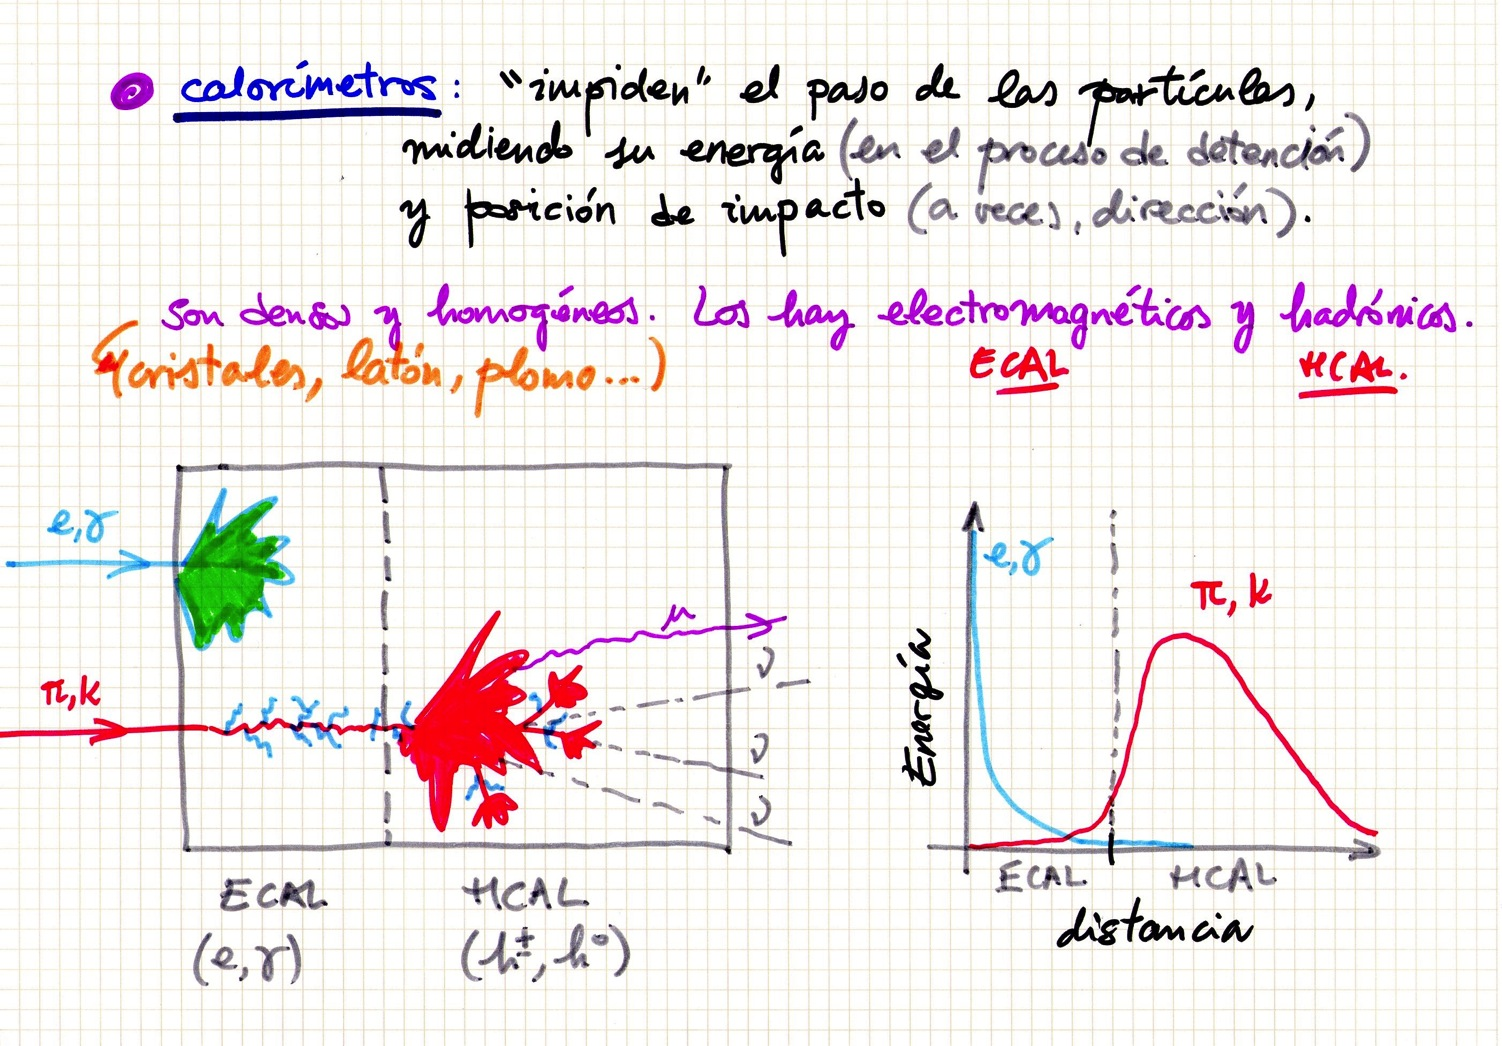 calorímetros: "impiden" el paso de las partículas,
midiendo su energía (en el proceso de detención)
y posición de impacto (a veces, dirección).
Son densos y homogéneos. Los hay electromagnéticos y hadrónicos.
(cristales, latón, plomo...)
ECAL
HCAL.
e,γ
π,k
μ
ν
ν
ν
ECAL
(e,γ)
HCAL
(h±, h°)
Energía
e,γ
π,k
ECAL
HCAL
distancia